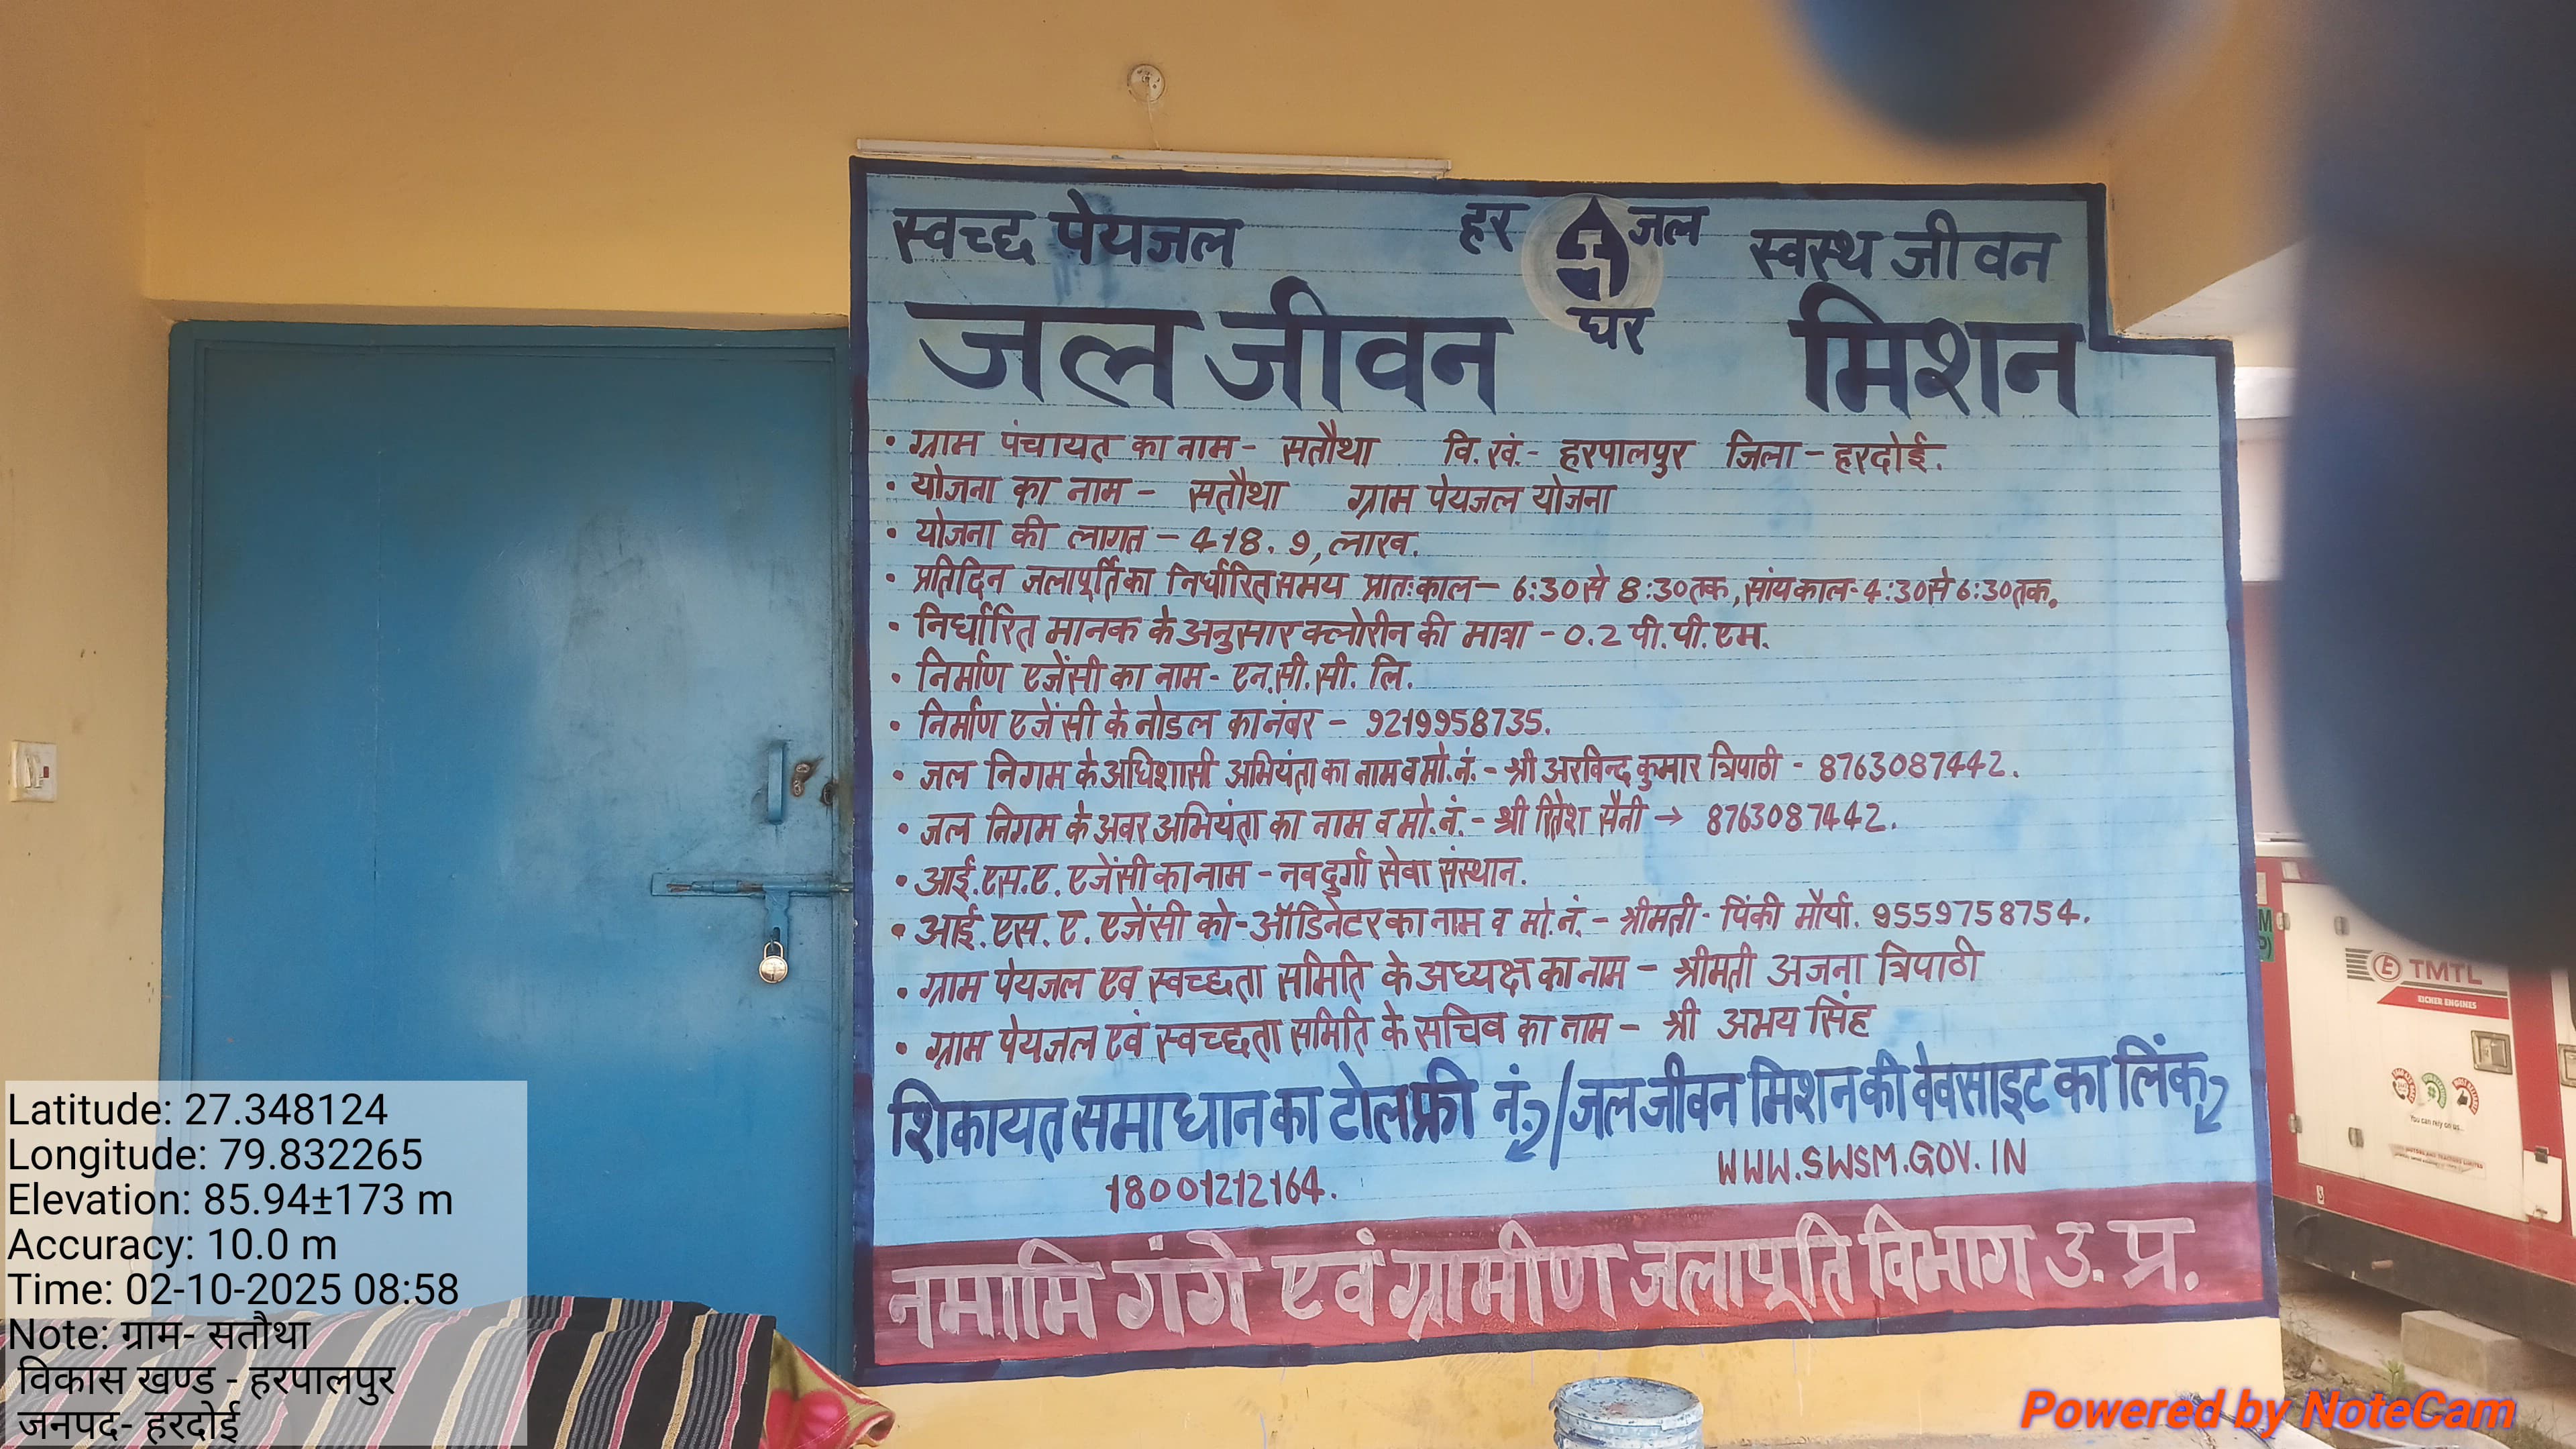 स्वच्छ पेयजल
हर जल
घर
स्वस्थ जीवन
जल जीवन मिशन
• ग्राम पंचायत का नाम - सतौथा वि.खं.- हरपालपुर जिला - हरदोई.
• योजना का नाम - सतौथा ग्राम पेयजल योजना
• योजना की लागत - 418.9, लाख.
• प्रतिदिन जलापूर्ति का निर्धारित समय प्रातःकाल - 6:30 से 8:30 तक, सांयकाल- 4:30 से 6:30 तक.
• निर्धारित मानक के अनुसार क्लोरीन की मात्रा - 0.2 पी.पी.एम.
• निर्माण एजेंसी का नाम - एन.सी.सी. लि.
• निर्माण एजेंसी के नोडल का नंबर - 9219958735.
• जल निगम के अधिशासी अभियंता का नाम व मो.नं. - श्री अरविन्द कुमार त्रिपाठी - 8763087442.
• जल निगम के अवर अभियंता का नाम व मो.नं. - श्री रितेश सैनी → 8763087442.
• आई.एस.ए. एजेंसी का नाम - नवदुर्गा सेवा संस्थान.
• आई.एस.ए. एजेंसी को-ऑडिनेटर का नाम व मो.नं. - श्रीमती- पिंकी मौर्या. 9559758754.
• ग्राम पेयजल एव स्वच्छता समिति के अध्यक्ष का नाम - श्रीमती अजना त्रिपाठी
• ग्राम पेयजल एवं स्वच्छता समिति के सचिव का नाम - श्री अभय सिंह
शिकायत समाधान का टोल फ्री नं. / जल जीवन मिशन की वेवसाइट का लिंक
18001212164.
WWW.SWSM.GOV.IN
नमामि गंगे एवं ग्रामीण जलापूर्ति विभाग उ. प्र.
TMTL
EICHER ENGINES
You can rely on us...
Latitude: 27.348124
Longitude: 79.832265
Elevation: 85.94±173 m
Accuracy: 10.0 m
Time: 02-10-2025 08:58
Note: ग्राम- सतौथा
विकास खण्ड - हरपालपुर
जनपद- हरदोई
Powered by NoteCam